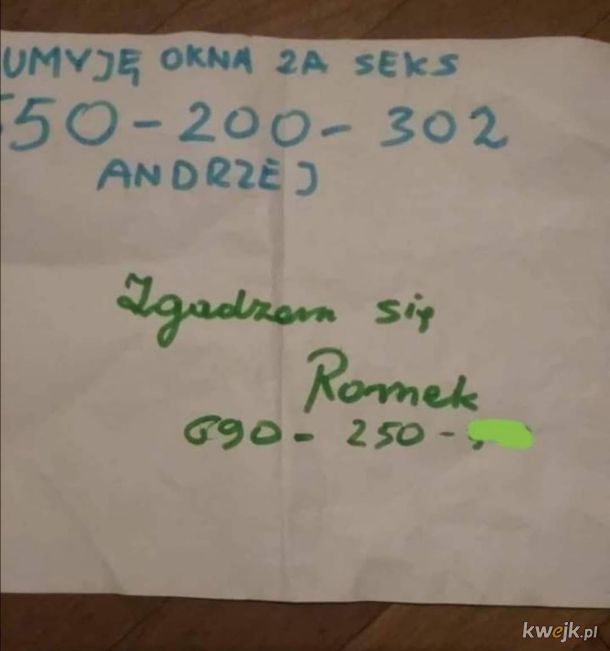 UMYJĘ OKNA ZA SEKS
550-200-302
ANDRZEJ
Zgadzam się
Romek
690-250-
kwejk.pl